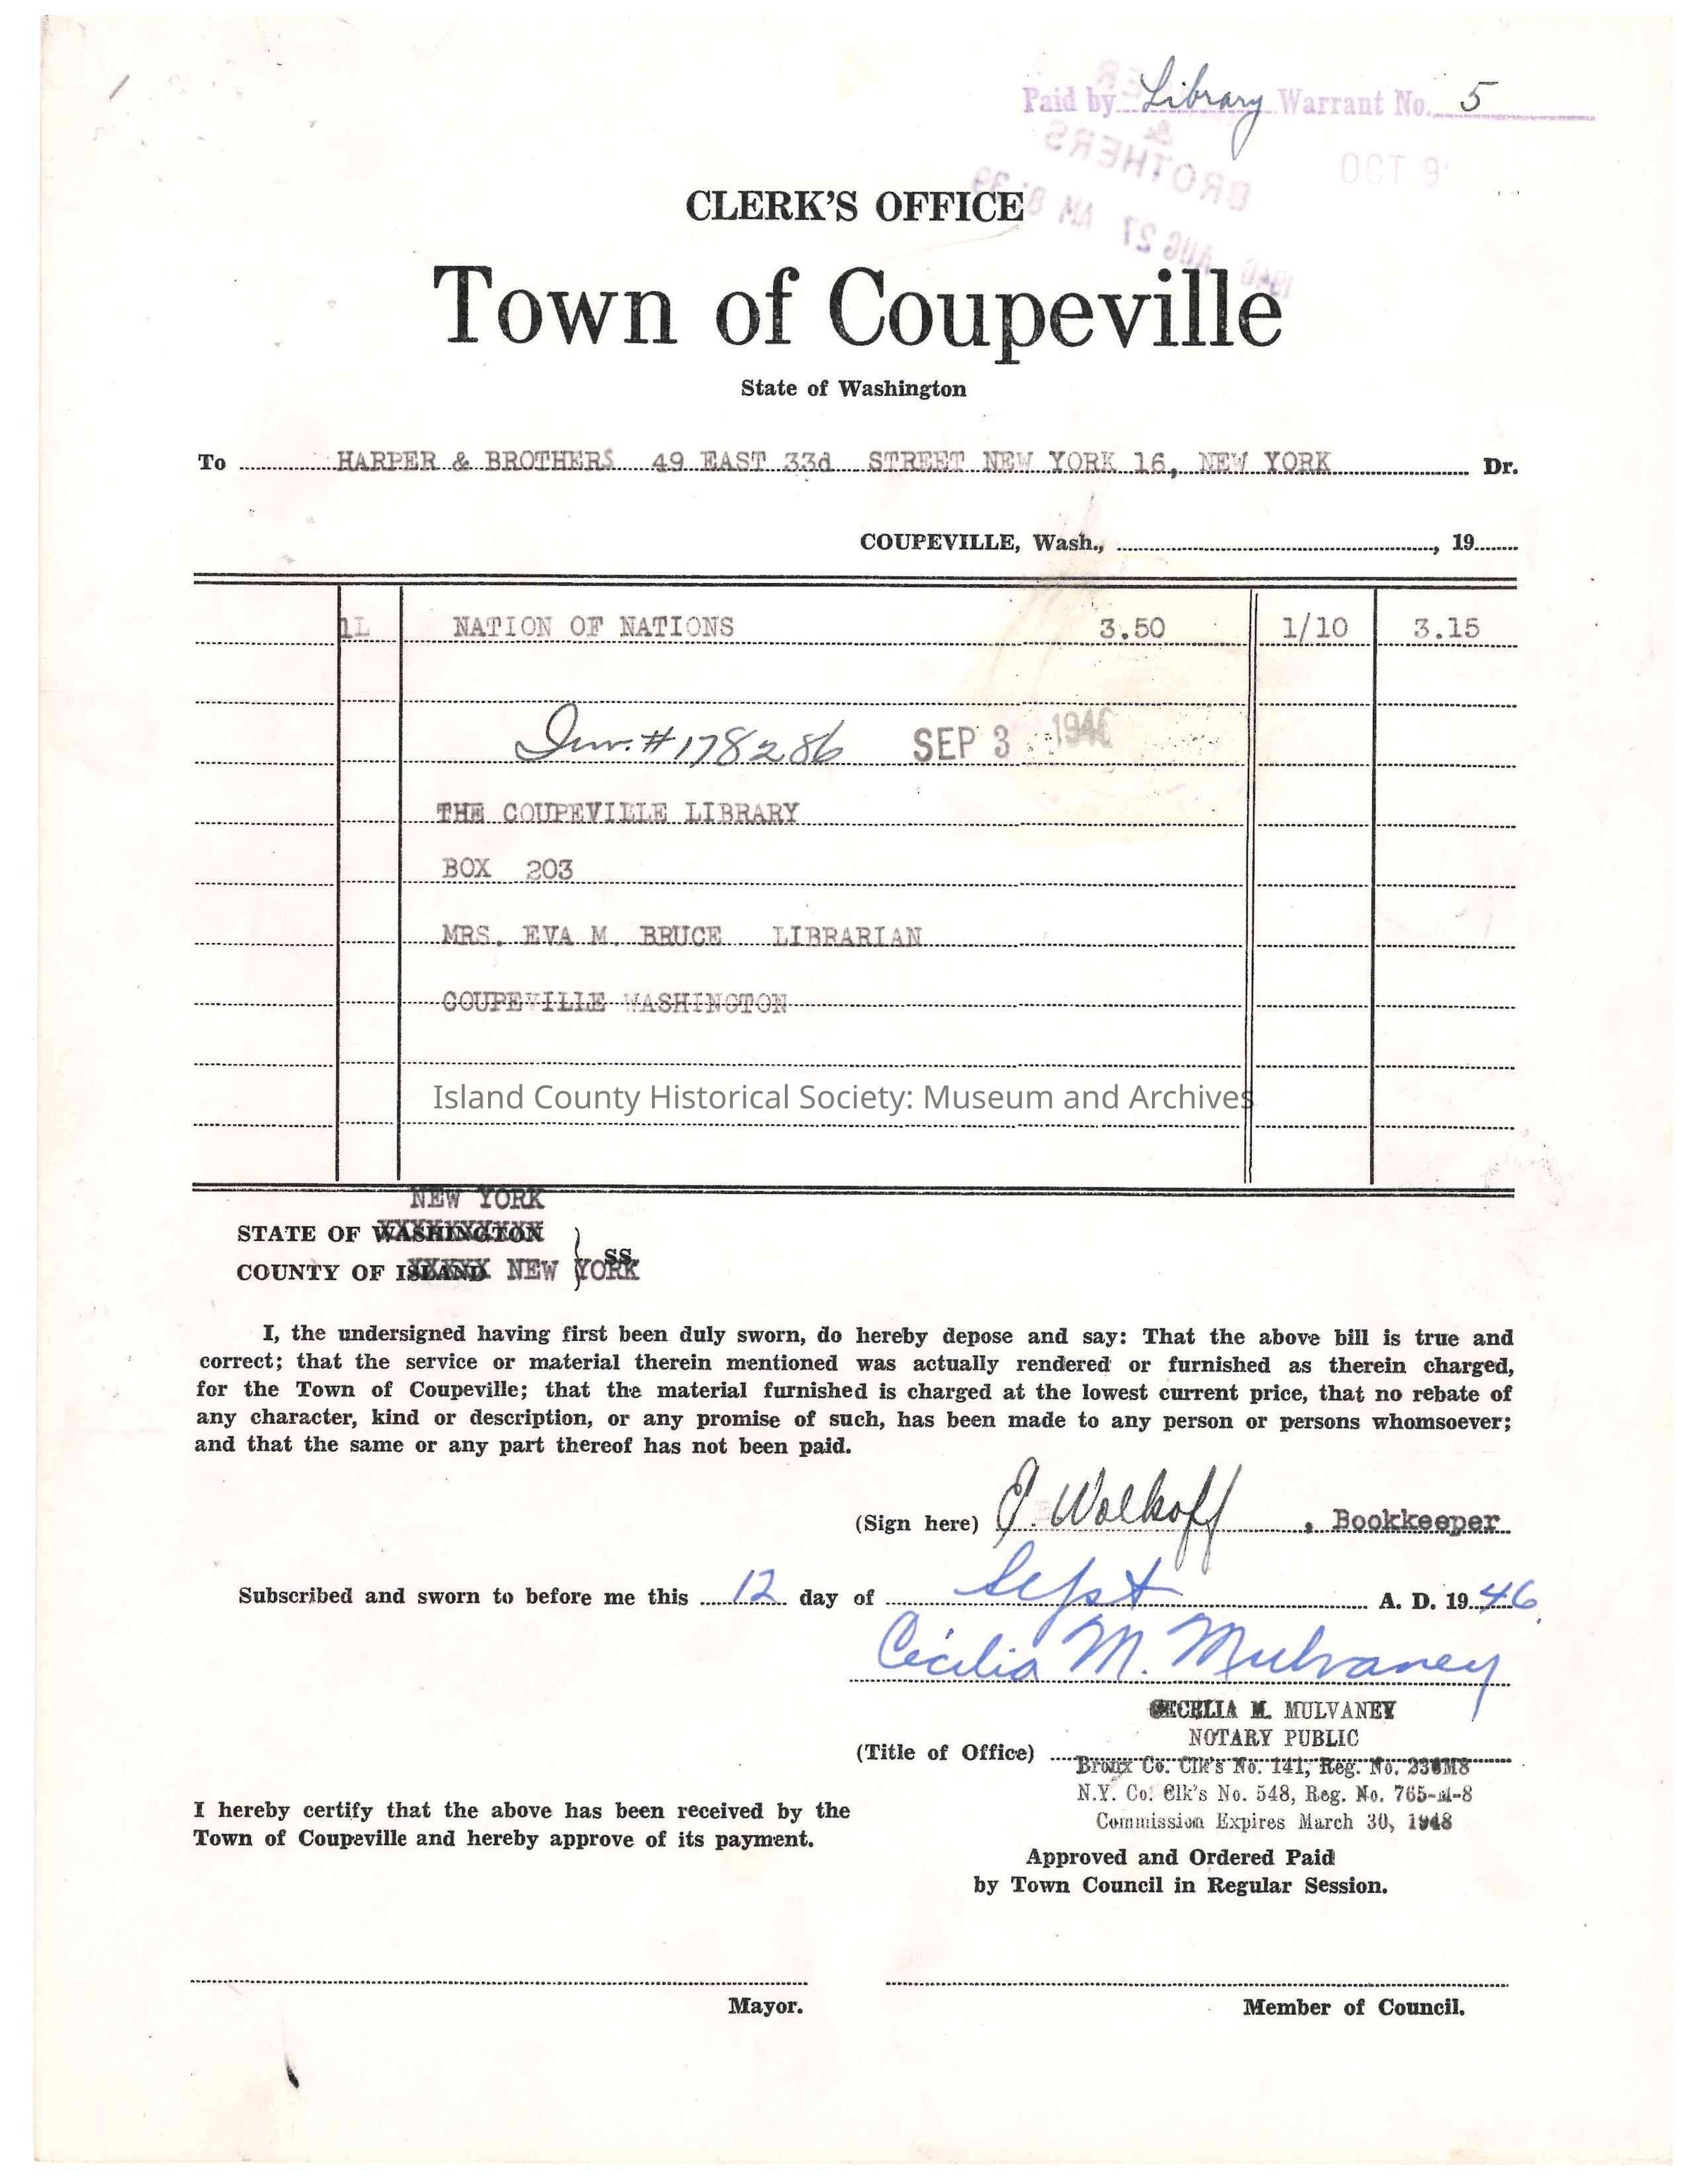 Paid by Library Warrant No. 5
BROTHERS
OCT 9
AUG 27 AM 8:39
CLERK'S OFFICE
Town of Coupeville
State of Washington
To HARPER & BROTHERS 49 EAST 33d STREET NEW YORK 16, NEW YORK Dr.
COUPEVILLE, Wash., , 19
1L NATION OF NATIONS 3.50 1/10 3.15
Inv. # 178286 SEP 3 1946
THE COUPEVILLE LIBRARY
BOX 203
MRS. EVA M. BRUCE LIBRARIAN
COUPEVILLE WASHINGTON
Island County Historical Society: Museum and Archives
NEW YORK
STATE OF WASHINGTON
COUNTY OF ISLAND NEW YORK SS.
I, the undersigned having first been duly sworn, do hereby depose and say: That the above bill is true and
correct; that the service or material therein mentioned was actually rendered or furnished as therein charged,
for the Town of Coupeville; that the material furnished is charged at the lowest current price, that no rebate of
any character, kind or description, or any promise of such, has been made to any person or persons whomsoever;
and that the same or any part thereof has not been paid.
(Sign here) Wolkoff , Bookkeeper
Subscribed and sworn to before me this 12 day of Sept A. D. 1946
Cecilia M. Mulvaney
CECELIA M. MULVANEY
NOTARY PUBLIC
(Title of Office)
Bronx Co. Clk's No. 141, Reg. No.
N.Y. Co. Clk's No. 548, Reg. No. 765-M-8
Commission Expires March 30, 1948
I hereby certify that the above has been received by the
Town of Coupeville and hereby approve of its payment.
Approved and Ordered Paid
by Town Council in Regular Session.
Mayor.
Member of Council.